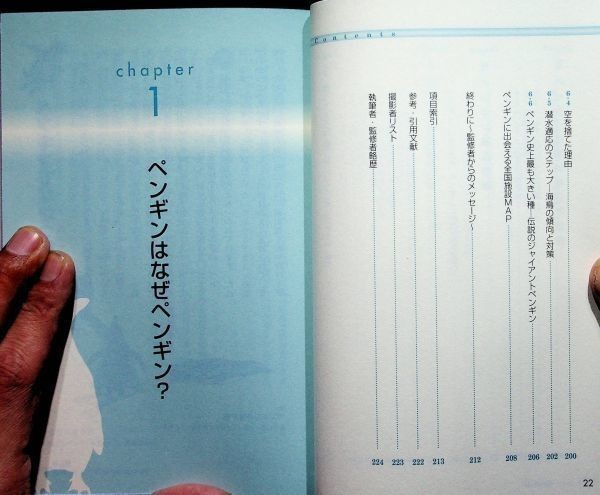 Contents
6-4 空を捨てた理由 200
6-5 潜水適応のステップ―海鳥の傾向と対策 202
6-6 ペンギン史上最も大きい種―伝説のジャイアントペンギン 206
ペンギンに出会える全国施設MAP 208
終わりに～監修者からのメッセージ～ 212
項目索引 213
参考・引用文献 222
撮影者リスト 223
執筆者・監修者略歴 224
22
chapter
1
ペンギンはなぜペンギン？